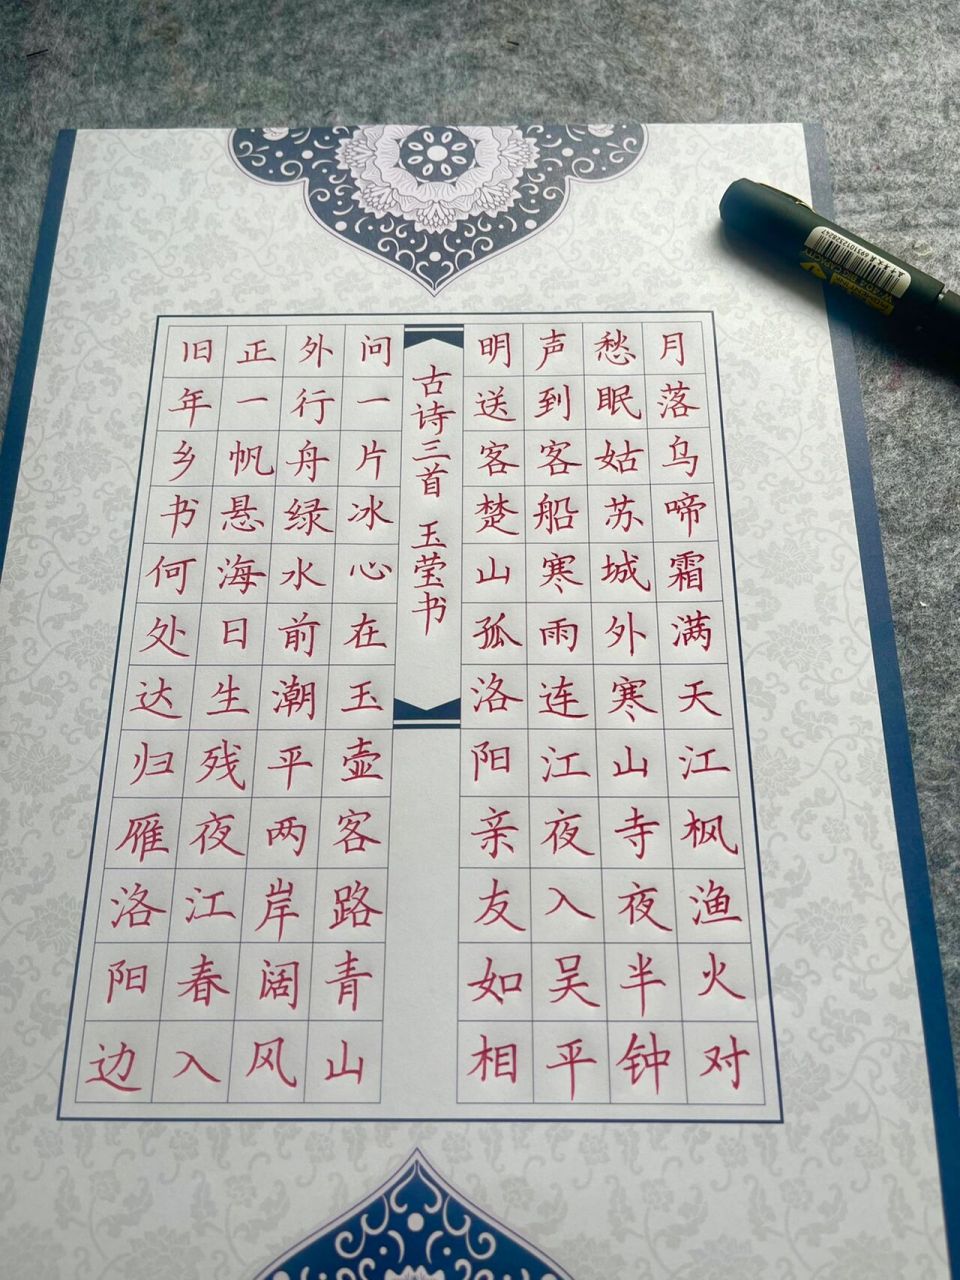 月落乌啼霜满天江枫渔火对
愁眠姑苏城外寒山寺夜半钟
声到客船寒雨连江夜入吴平
明送客楚山孤洛阳亲友如相
古诗三首 玉莹书
问一片冰心在玉壶客路青山
外行舟绿水前潮平两岸阔风
正一帆悬海日生残夜江春入
旧年乡书何处达归雁洛阳边